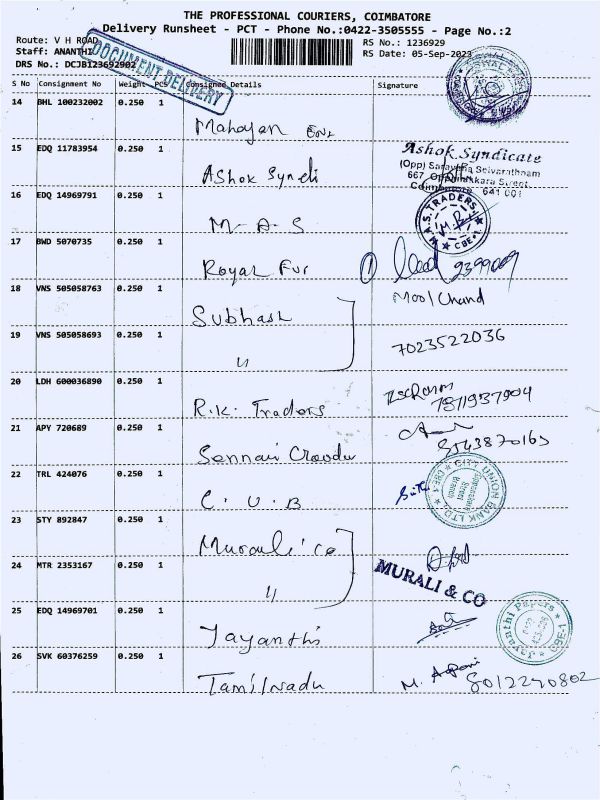 THE PROFESSIONAL COURIERS, COIMBATORE
Delivery Runsheet - PCT - Phone No.:0422-3505555 - Page No.:2
Route: V H ROAD
RS No.: 1236929
Staff: ANANTHI
RS Date: 05-Sep-2023
DRS No.: DCJB123692902
DOCUMENT DELIVERY
S No Consignment No Weight PCS Consigned Details Signature
14 BHL 100232002 0.250 1
Mahajan
15 EDQ 11783954 0.250 1
Ashok Syndicate
(Opp) Sarayana Selvarathnam
667 Oppanakkara Street,
Coimbatore 641 001
Ashok Syndi
16 EDQ 14969791 0.250 1
M.A.S. TRADERS
CBE-1
M. A. S
17 BWD 5070735 0.250 1
Royal Fur
2399009
18 VNS 505058763 0.250 1
Mool Chand
Subhash
19 VNS 505058693 0.250 1
7023522036
"
20 LDH 600036890 0.250 1
7811937904
R.K. Traders
21 APY 720689 0.250 1
Sennai Crowdu
22 TRL 424076 0.250 1
CITY UNION BANK LTD.
CBE-1
C. U. B
23 STY 892847 0.250 1
Murauli co
24 MTR 2353167 0.250 1
MURALI & CO
"
25 EDQ 14969701 0.250 1
Jayanthi Papers
CBE-1
Jayanthi
26 SVK 60376259 0.250 1
8012290802
Tamilnadu